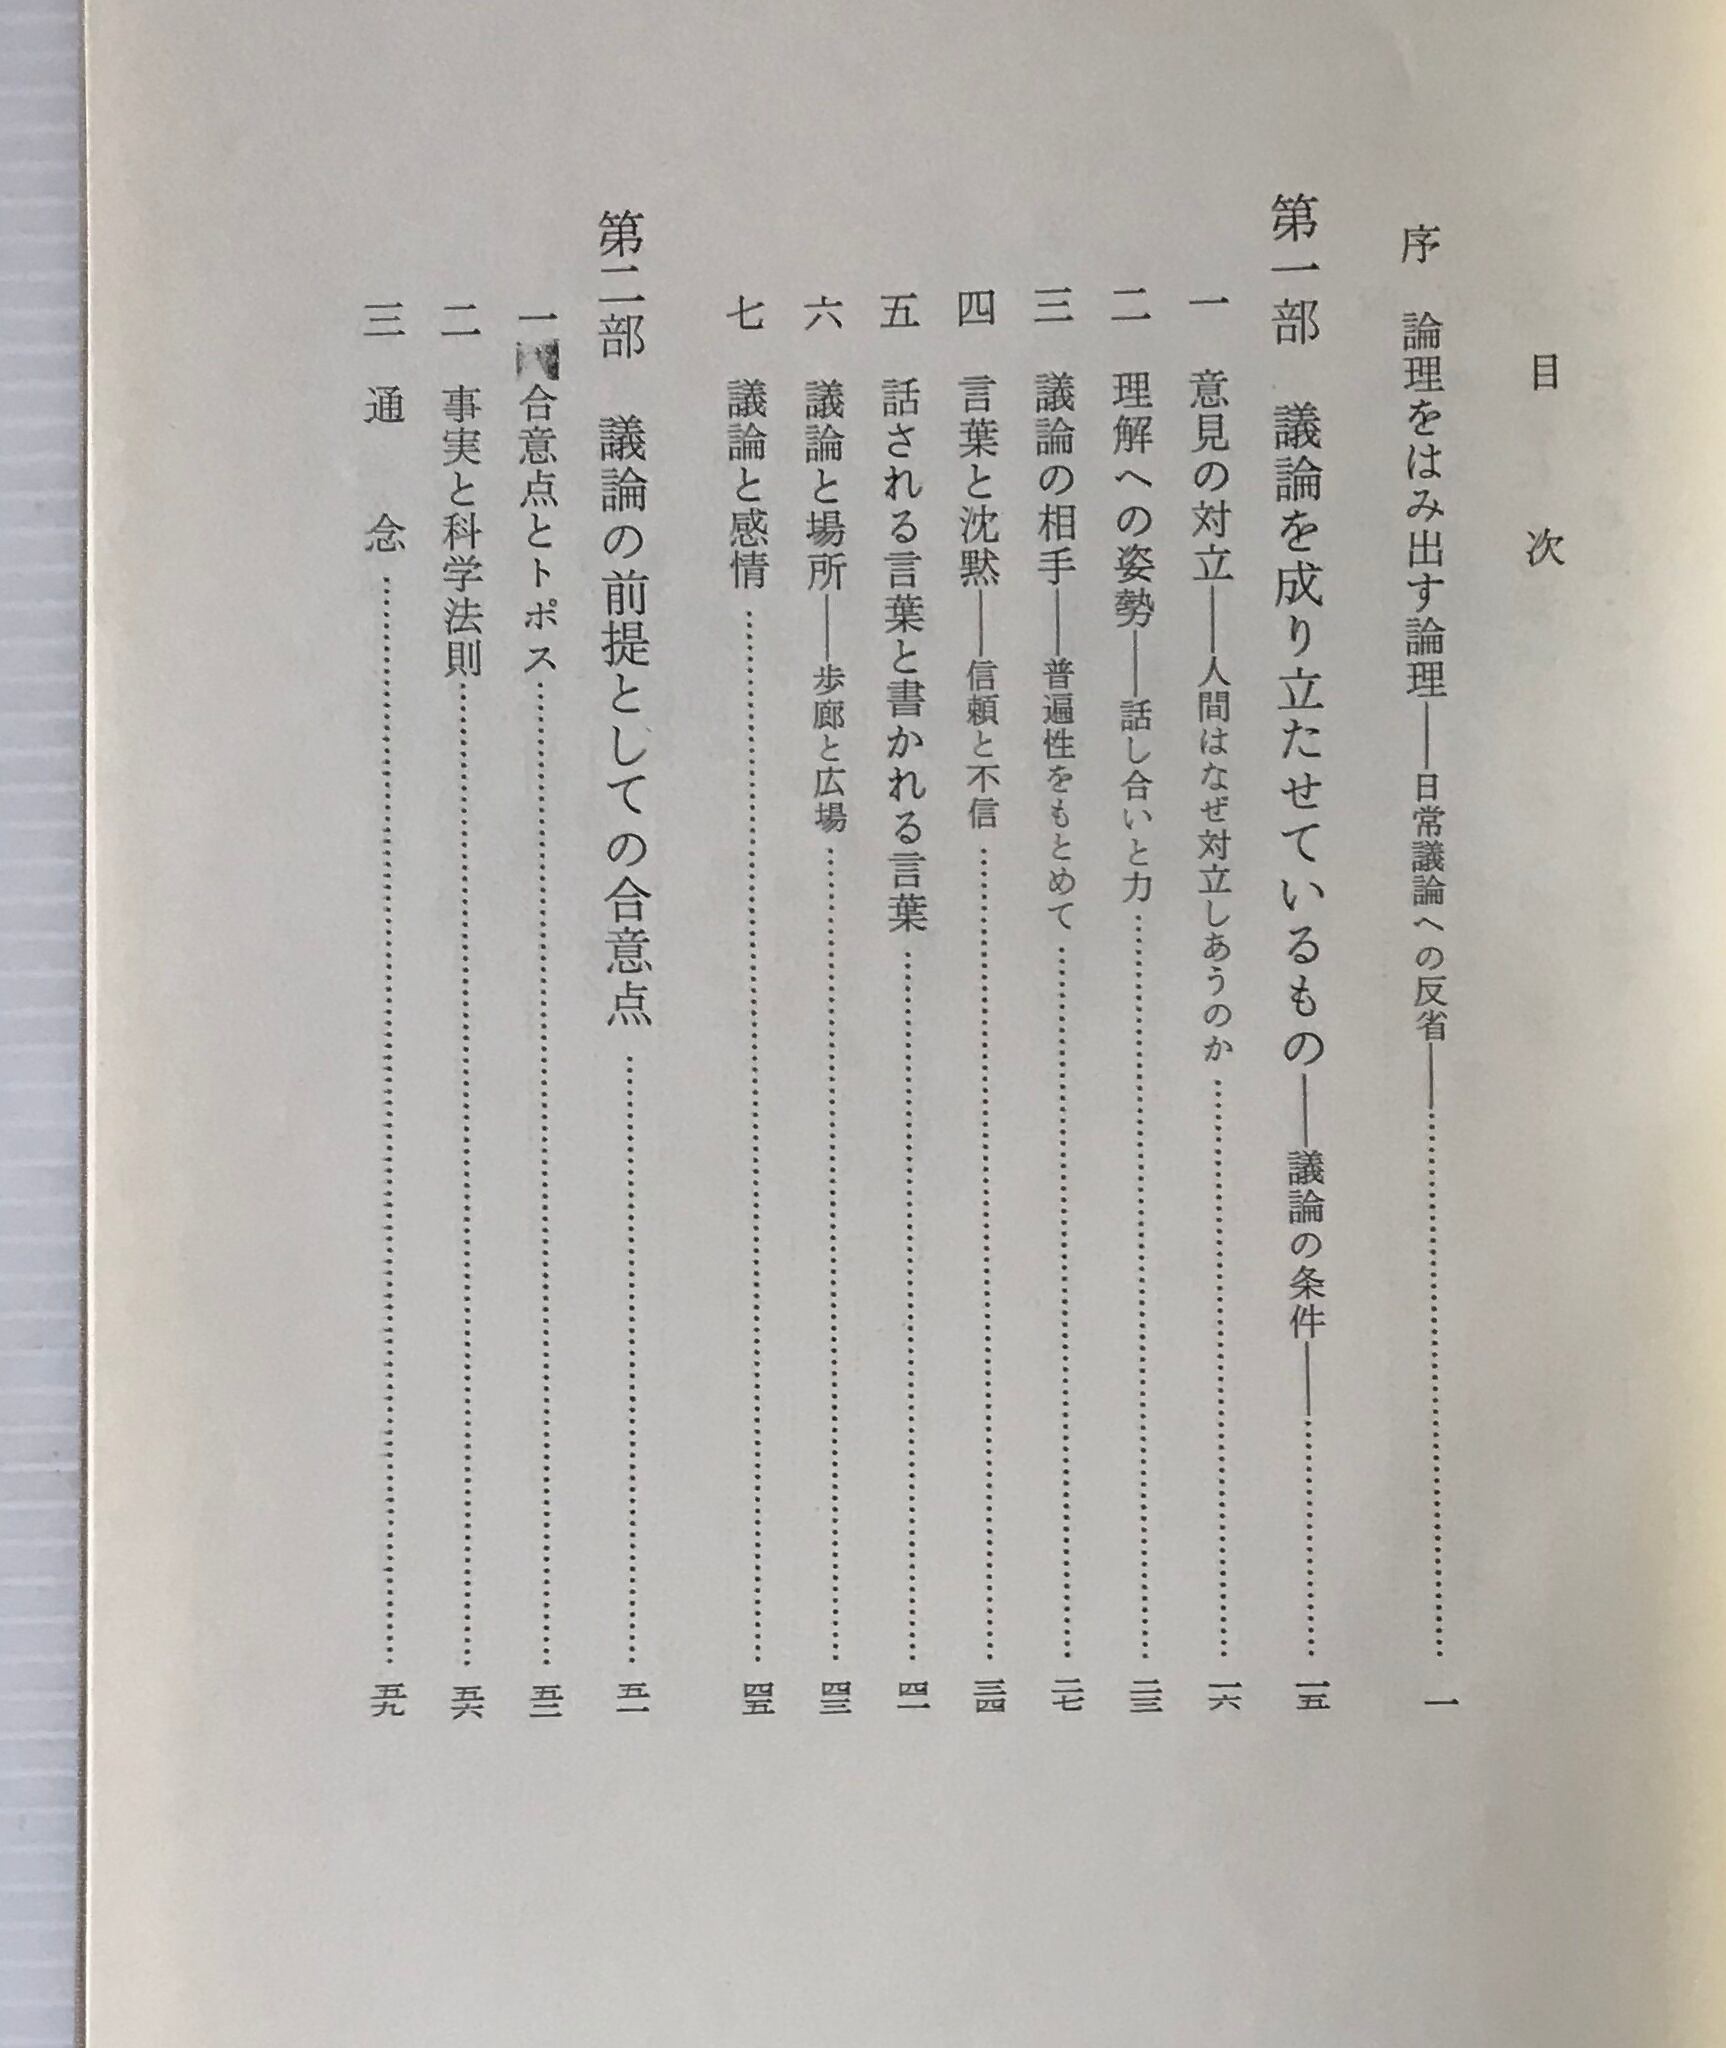 目次
序 論理をはみ出す論理――日常議論への反省――……一
第一部 議論を成り立たせているもの――議論の条件――……一五
一 意見の対立――人間はなぜ対立しあうのか……一六
二 理解への姿勢――話し合いと力……二三
三 議論の相手――普遍性をもとめて……二七
四 言葉と沈黙――信頼と不信……三四
五 話される言葉と書かれる言葉……四一
六 議論と場所――歩廊と広場……四三
七 議論と感情……四五
第二部 議論の前提としての合意点……五一
一 合意点とトポス……五二
二 事実と科学法則……五六
三 通念……五九